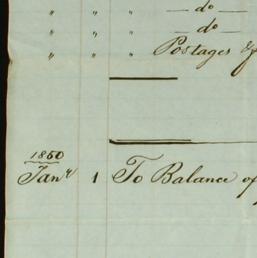 " " " — do —
" " " — do —
" " " Postages &
1850
Janʸ 1 To Balance of